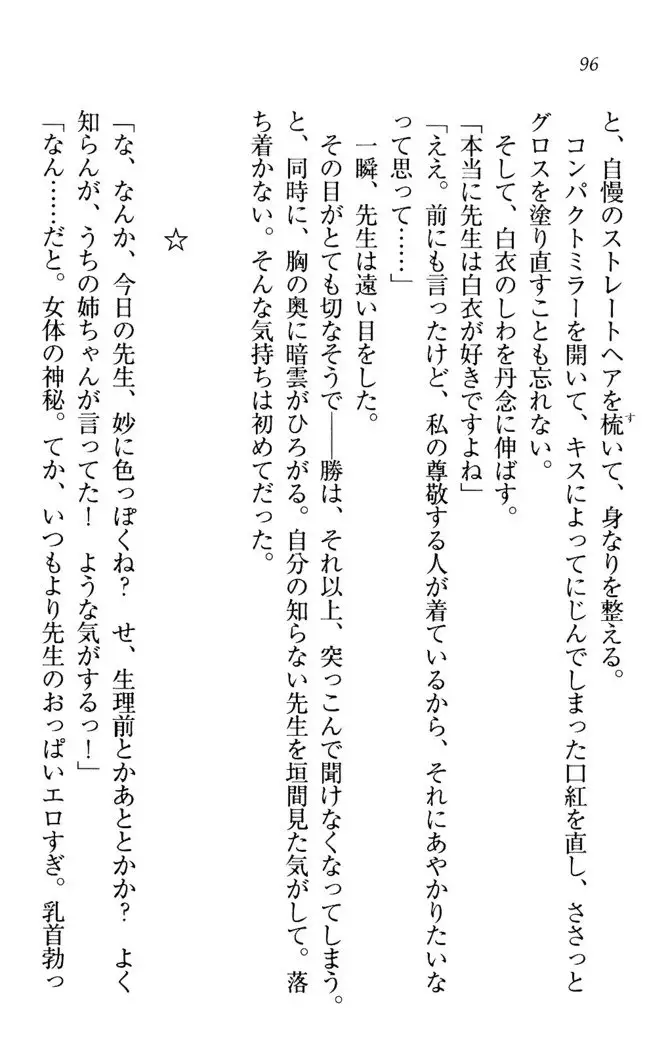 96
と、自慢のストレートヘアを梳いて、身なりを整える。
　コンパクトミラーを開いて、キスによってにじんでしまった口紅を直し、ささっと
グロスを塗り直すことも忘れない。
　そして、白衣のしわを丹念に伸ばす。
「本当に先生は白衣が好きですよね」
「ええ。前にも言ったけど、私の尊敬する人が着ているから、それにあやかりたいな
って思って……」
　一瞬、先生は遠い目をした。
　その目がとても切なそうで――勝は、それ以上、突っこんで聞けなくなってしまう。
と、同時に、胸の奥に暗雲がひろがる。自分の知らない先生を垣間見た気がして。落
ち着かない。そんな気持ちは初めてだった。
☆
「な、なんか、今日の先生、妙に色っぽくね？　せ、生理前とかあととかか？　よく
知らんが、うちの姉ちゃんが言ってた！　ような気がするっ！」
「なん……だと。女体の神秘。てか、いつもより先生のおっぱいエロすぎ。乳首勃っ